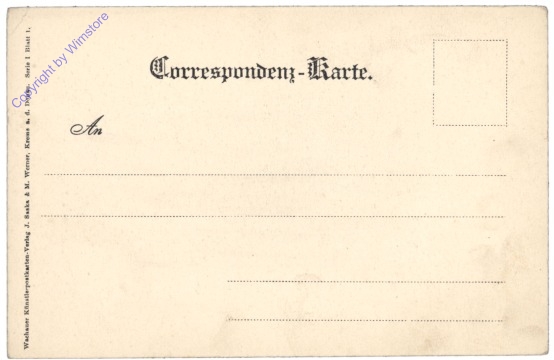 Correspondenz-Karte.
An
Wachauer Künstlerpostkarten-Verlag J. Saska & M. Werner, Krems a. d. Donau. Serie 1 Blatt 1.
Copyright by Wimstore